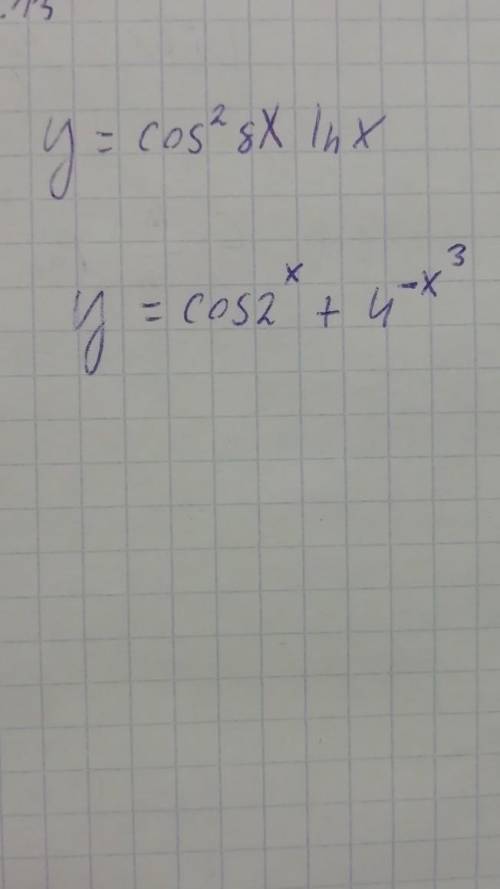 y = cos² 8x ln x
y = cos 2^x + 4^{-x^3}